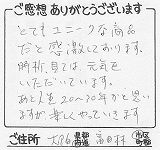 ご感想 ありがとうございます
とてもユニークな商品
だと感激しております。
時折見ては、元気を
いただいています。
あと人生20〜30年かと思い
ますが楽しくやっています
ご住所 大阪 都道府県 富田林 市区町村